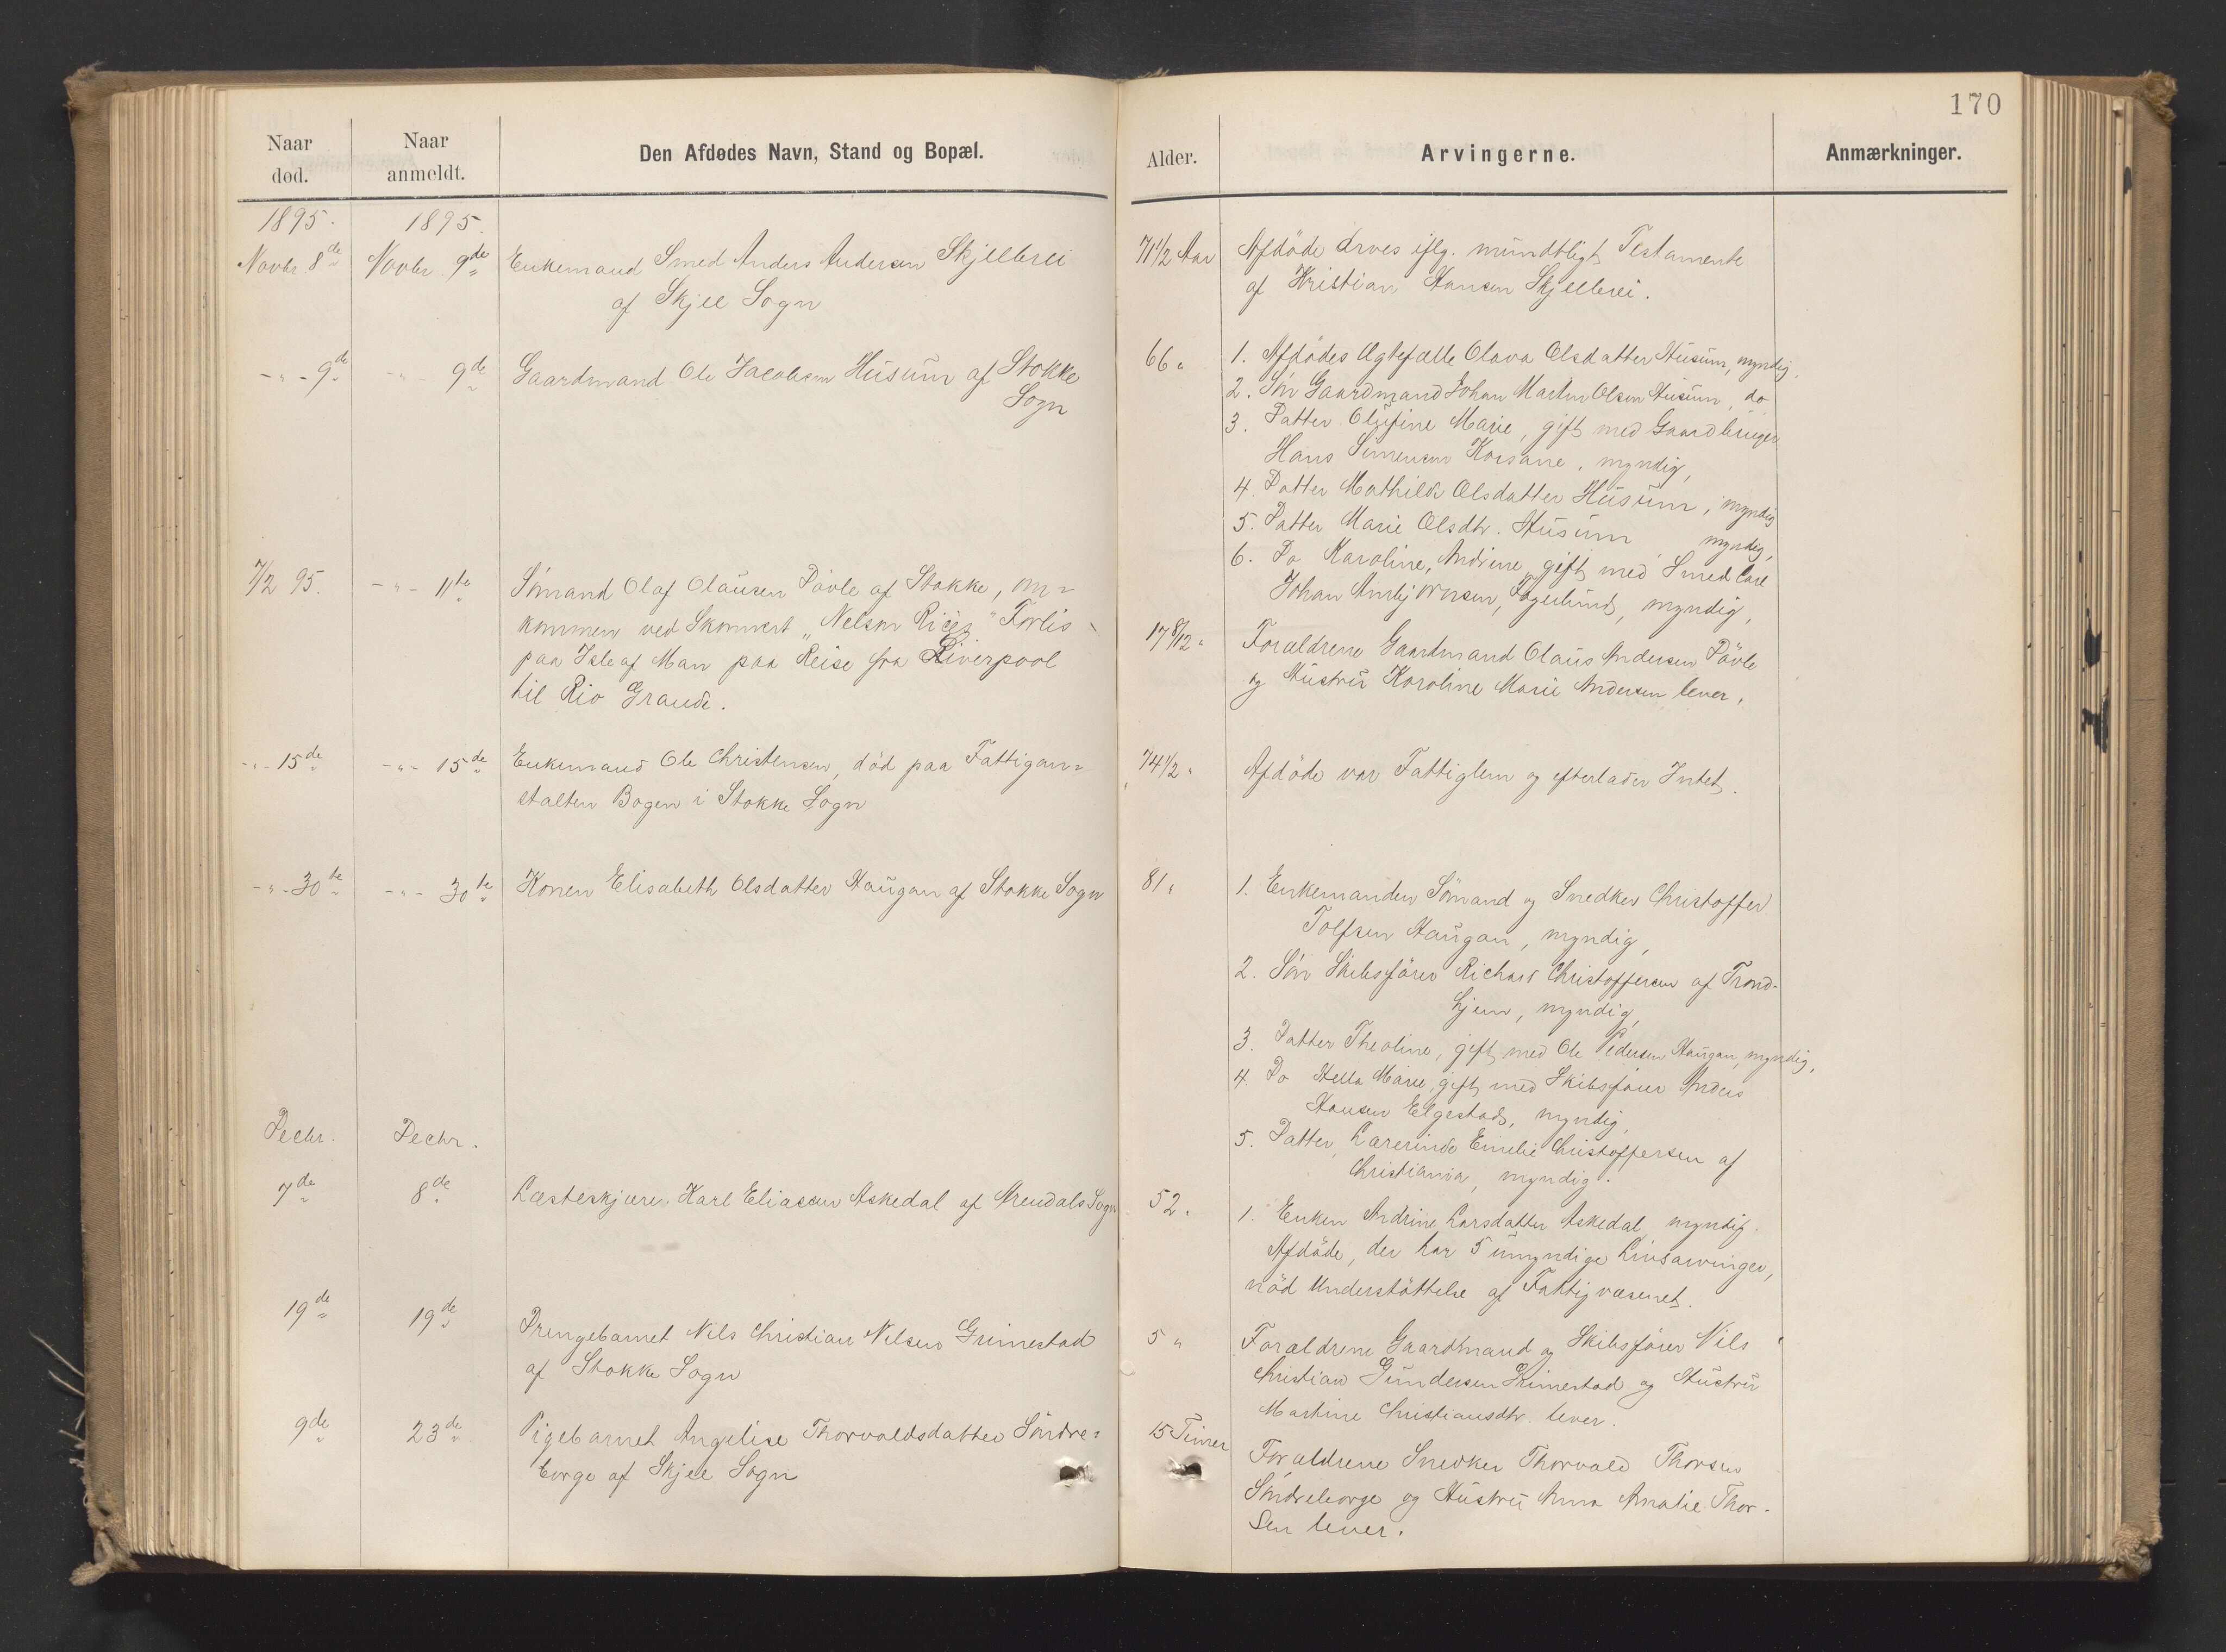 170
Naar død.
Naar anmeldt.
Den Afdødes Navn, Stand og Bopæl.
Alder.
Arvingerne.
Anmærkninger.
1895. 1895.
Novbr. 8de Novbr. 9de Enkemand Smed Anders Andersen Skjellbrei
af Skjee Sogn
71 1/2 Aar Afdöde arves iflg. mundtligt Testamente
af Kristian Hansen Skjellbrei.
-"- 9de -"- 9de Gaardmand Ole Jacobsen Husum af Stokke
Sogn
66 " 1. Afdödes Ægtefælle Olava Olsdatter Husum, myndig,
2. Sön Gaardmand Johan Martin Olsen Husum, do
3. Datter Olufine Marie, gift med Gaardbruger
Hans Simensen Korsane, myndig,
4. Datter Mathilde Olsdatter Husum, myndig
5. Datter Marie Olsdtr. Husum myndig,
6. Do Karoline Andrine, gift med Smed Carl
Johan Arnbjörnsen, Fagerlund, myndig,
7/2 95. -"- 11te Sömand Olaf Olausen Dövle af Stokke, om=
kommen ved Skonnert "Nelson Rices" Forlis
paa Isle af Man paa Reise fra Liverpool
til Rio Grande.
17 8/12 " Forældrene Gaardmand Olaus Andersen Dövle
og Hustru Karoline Marie Andersen lever.
-"- 15de -"- 15de Enkemand Ole Christensen, död paa Fattigan=
stalten Bogen i Stokke Sogn
74 1/2 " Afdöde var Fattiglem og efterlader Intet.
-"- 30te -"- 30te Konen Elisabeth Olsdatter Haugan af Stokke Sogn
81 " 1. Enkemanden Sömand og Snedker Christoffer
Tolfsen Haugan, myndig,
2. Sön Skibsförer Richard Christoffersen af Trond-
hjem, myndig,
3. Datter Theoline, gift med Ole Pedersen Haugan, myndig,
4. Do Hella Marie, gift med Skibsförer Anders
Hansen Elgestad, myndig,
5. Datter, Lærerinde Emilie Christoffersen af
Christiania, myndig.
Decbr. Decbr.
7de 8de Læsteskjærer Karl Eliassen Askedal af Arendals Sogn
52 " 1. Enken Andrine Larsdatter Askedal, myndig.
Afdöde, der har 5 umyndige Livsarvinger,
nöd Understöttelse af Fattigvæsenet.
19de 19de Drengebarnet Nils Christian Nilsen Grimestad
af Stokke Sogn
5 " Forældrene Gaardmand og Skibsförer Nils
Christian Gundersen Grimestad og Hustru
Martine Christiansdtr. lever.
9de 23de Pigebarnet Angelise Thorvaldsdatter Söndre=
borge af Skjee Sogn
15 Timer Forældrene Snedker Thorvald Thorsen
Söndreborge og Hustru Anna Amalie Thor-
sen lever.